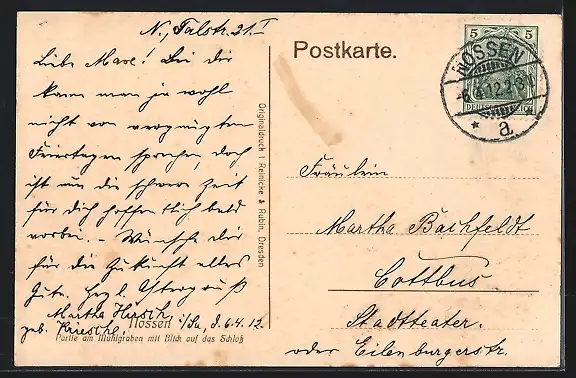 N., Talstr. 21. I
Liebe Mare! Bei dir
kann man ja wohl
nicht von vergnügten
Feiertagen sprechen, doch
ist nun die schwere Zeit
für dich hoffentlich bald
vorbei. – Wünsche dir
für die Zukunft alles
Gute. Herzl. Ostergruß
Martha Hirsch
geb.
Nossen i/Sa, d. 6.4.12.
Partie am Mühlgraben mit Blick auf das Schloß
Originaldruck v. Reinicke & Rubin, Dresden
Postkarte.
5 5
DEUTSCHES REICH
NOSSEN
6.4.12.
* a
Fräulein
Martha Bachfeldt
Cottbus
Stadttheater.
oder Eilenburgerstr.